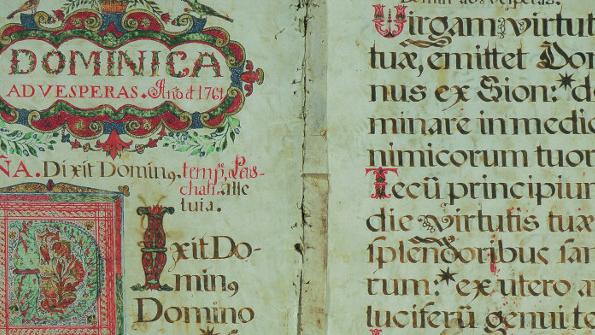 DOMINICA
AD VESPERAS. Año d 1761
ÑA. Dixit Domin9 temp. Pas-
chali. alle
luia.
DixitDo-
min9
Domino
Virgam virtut
tuæ, emittet Do
nus ex Sion:* do
minare in medio
nimicorum tuor
Tecū principium
die virtutis tuæ
splendoribus san
rum:* ex utero a
luciferū genui te